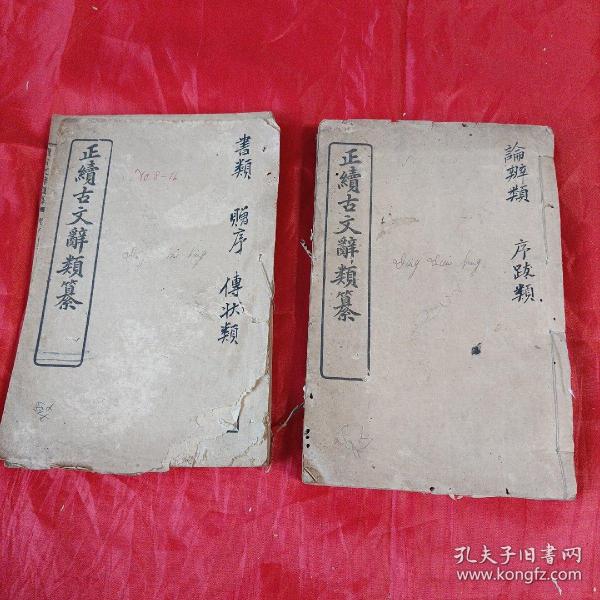 正續古文辭類纂
No. 8-16
書類
贈序
傳狀類
正續古文辭類纂
論辨類
序跋類
孔夫子旧書网
www.kongfz.com